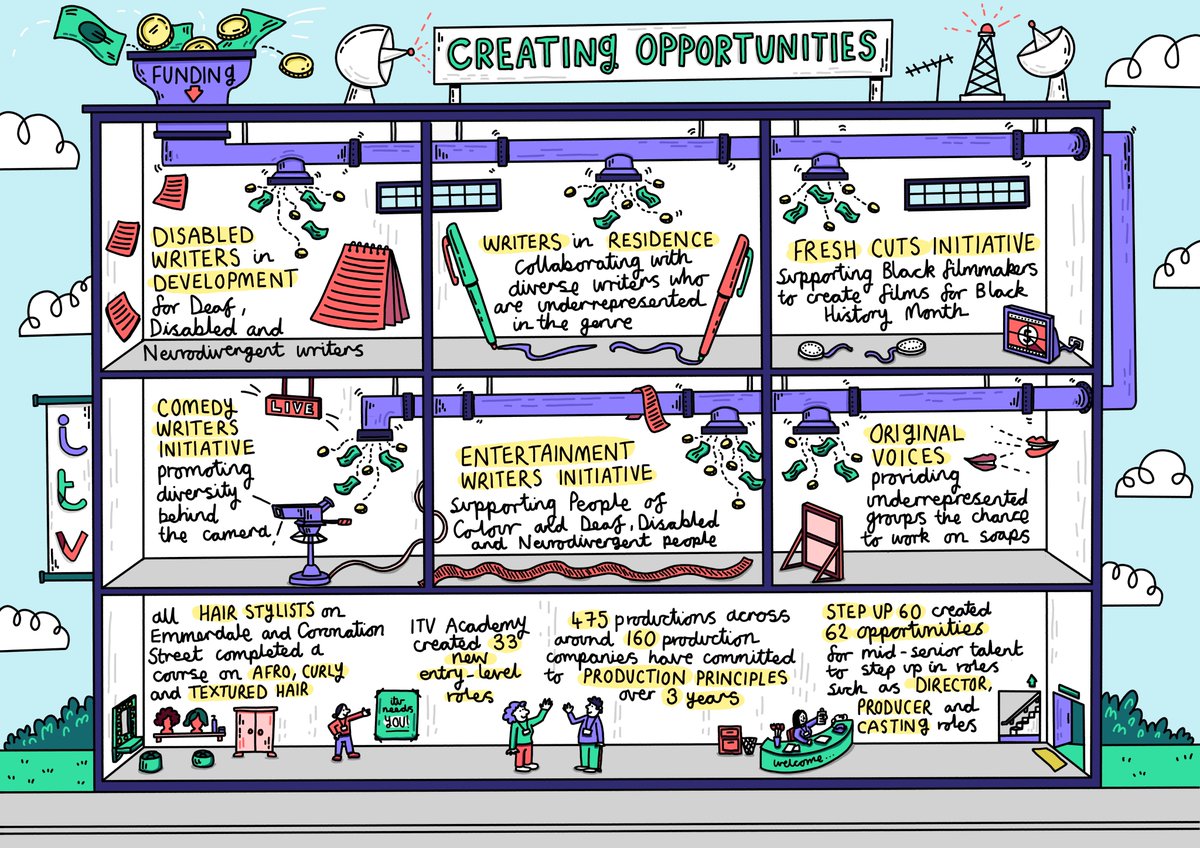 CREATING OPPORTUNITIES
FUNDING
DISABLED
WRITERS in
DEVELOPMENT
for Deaf,
Disabled and
Neurodivergent writers
WRITERS in RESIDENCE
collaborating with
diverse writers who
are underrepresented
in the genre
FRESH CUTS INITIATIVE
supporting Black filmmakers
to create films for Black
History Month
5
itv
COMEDY
WRITERS
INITIATIVE
promoting
diversity
behind
the camera!
LIVE
ENTERTAINMENT
WRITERS INITIATIVE
supporting People of
Colour and Deaf, Disabled
and Neurodivergent people
ORIGINAL
VOICES
providing
underrepresented
groups the chance
to work on soaps
all HAIR STYLISTS on
Emmerdale and Coronation
Street completed a
course on AFRO, CURLY
and TEXTURED HAIR
itv
needs
YOU!
ITV Academy
created 33
new
entry-level
roles
475 productions across
around 160 production
companies have committed
to PRODUCTION PRINCIPLES
over 3 years
STEP UP 60 created
62 opportunities
for mid-senior talent
to step up in roles
such as DIRECTOR,
PRODUCER and
CASTING roles
welcome...